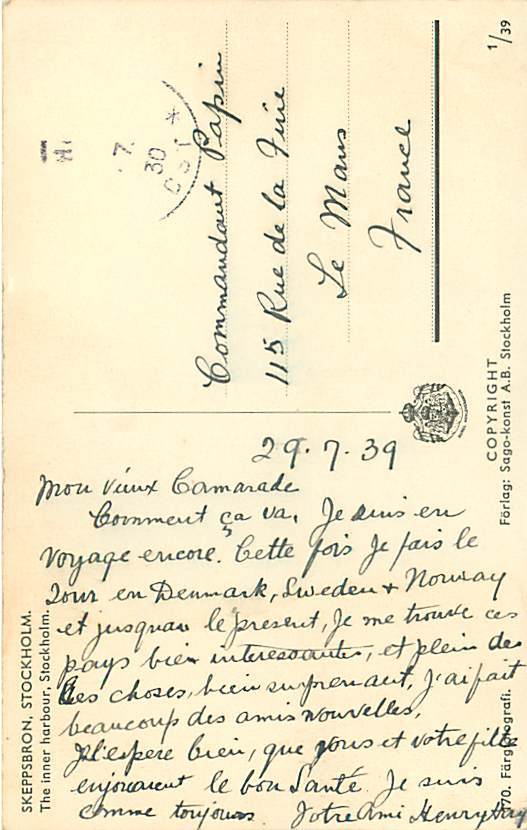 29.7.39
Mon vieux Camarade
Comment ça va. Je suis en
voyage encore. Cette fois je fais le
tour en Denmark, Sweden + Norway
et jusquau le present, Je me trouve ces
pays bien interessantes, et plein de
les choses, bien surprenant, J'ai fait
beaucoup des amis nouvelles.
J'espere bien, que vous et votre fille
enjouent le bon Santé. Je suis
comme toujours Votre Ami Henry
Commandant Papin
115 Rue de la
Le Mans
France
7. 30
SKEPPSBRON, STOCKHOLM.
The inner harbour, Stockholm.
170. Färgfotografi.
COPYRIGHT
Förlag: Sago-konst A.B. Stockholm
1/39